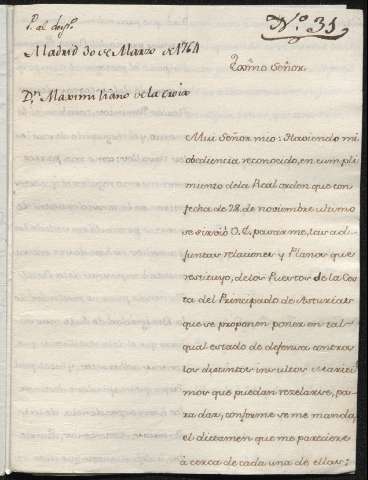 Nº 35
Madrid 30 de Marzo de 1764
Dn Maximiliano de la Croix
Exmo Señor.
Mui Señor mio: Haviendo mi
obediencia reconocido, en cumpli
miento dela Real orden que con
fecha de 28 de noviembre ultimo
se sirvió V.E. pasarme, las ad
juntas relaciones y Planos que
restituyo, delos Puertos de la Cos
ta del Principado de Asturias
que se proponen poner en tal
qual estado de defensa contra
los distintos insultos Mariti
mos que puedan rezelarse, pa
ra dar, conforme se me manda,
el dictamen que me pareciere
à cerca de cada una de ellas;